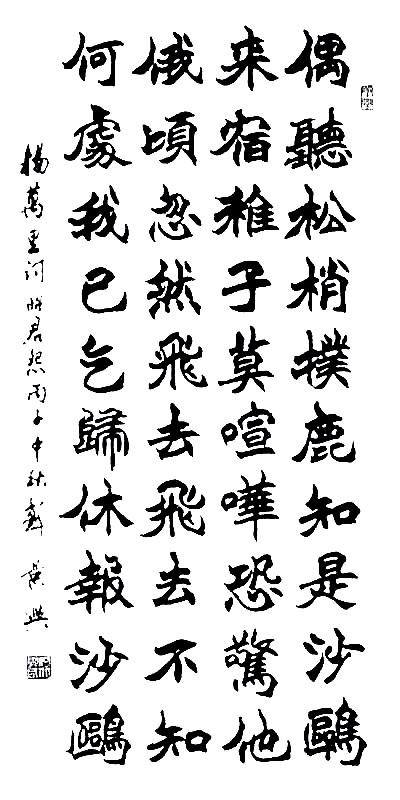 偶聽松梢撲鹿知是沙鷗
来宿稚子莫喧嘩恐驚他
俄頃忽然飛去飛去不知
何處我已乞歸休報沙鷗
楊萬里词昭君怨丙子中秋戴